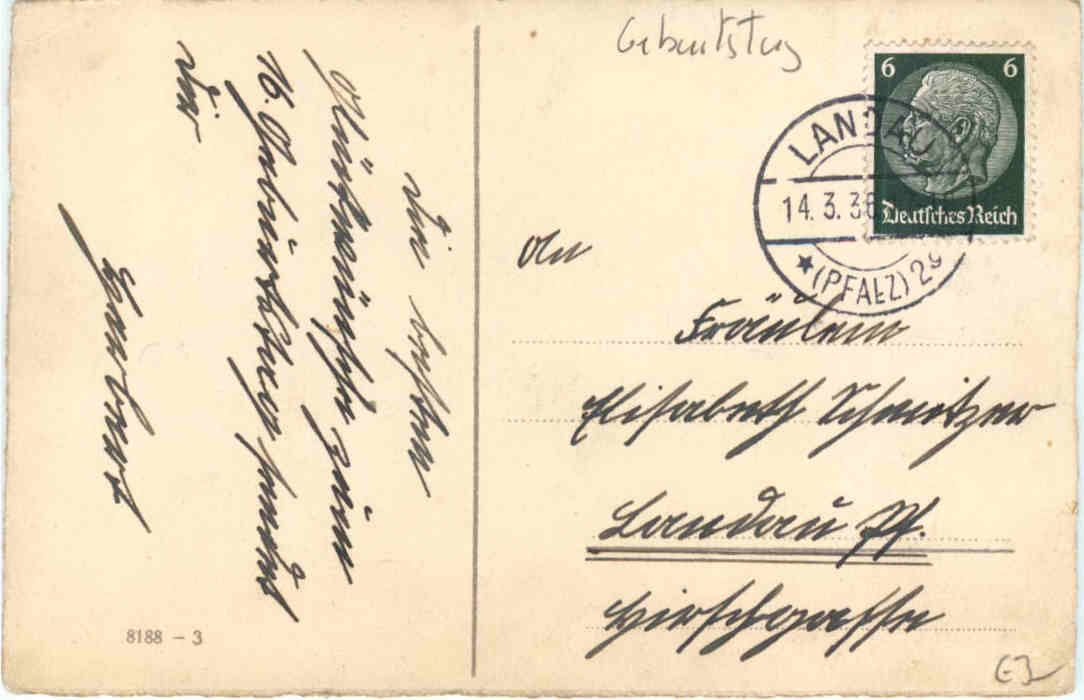 Die besten
Glückwünsche zum
16. Geburtstag sendet
Dir
Herbert
8188 - 3
Geburtstag
6 6
Deutsches Reich
LANDAU
14. 3. 36
(PFALZ) 2
An
Fräulein
Elisabeth
Landau Pf.
Hirschgasse